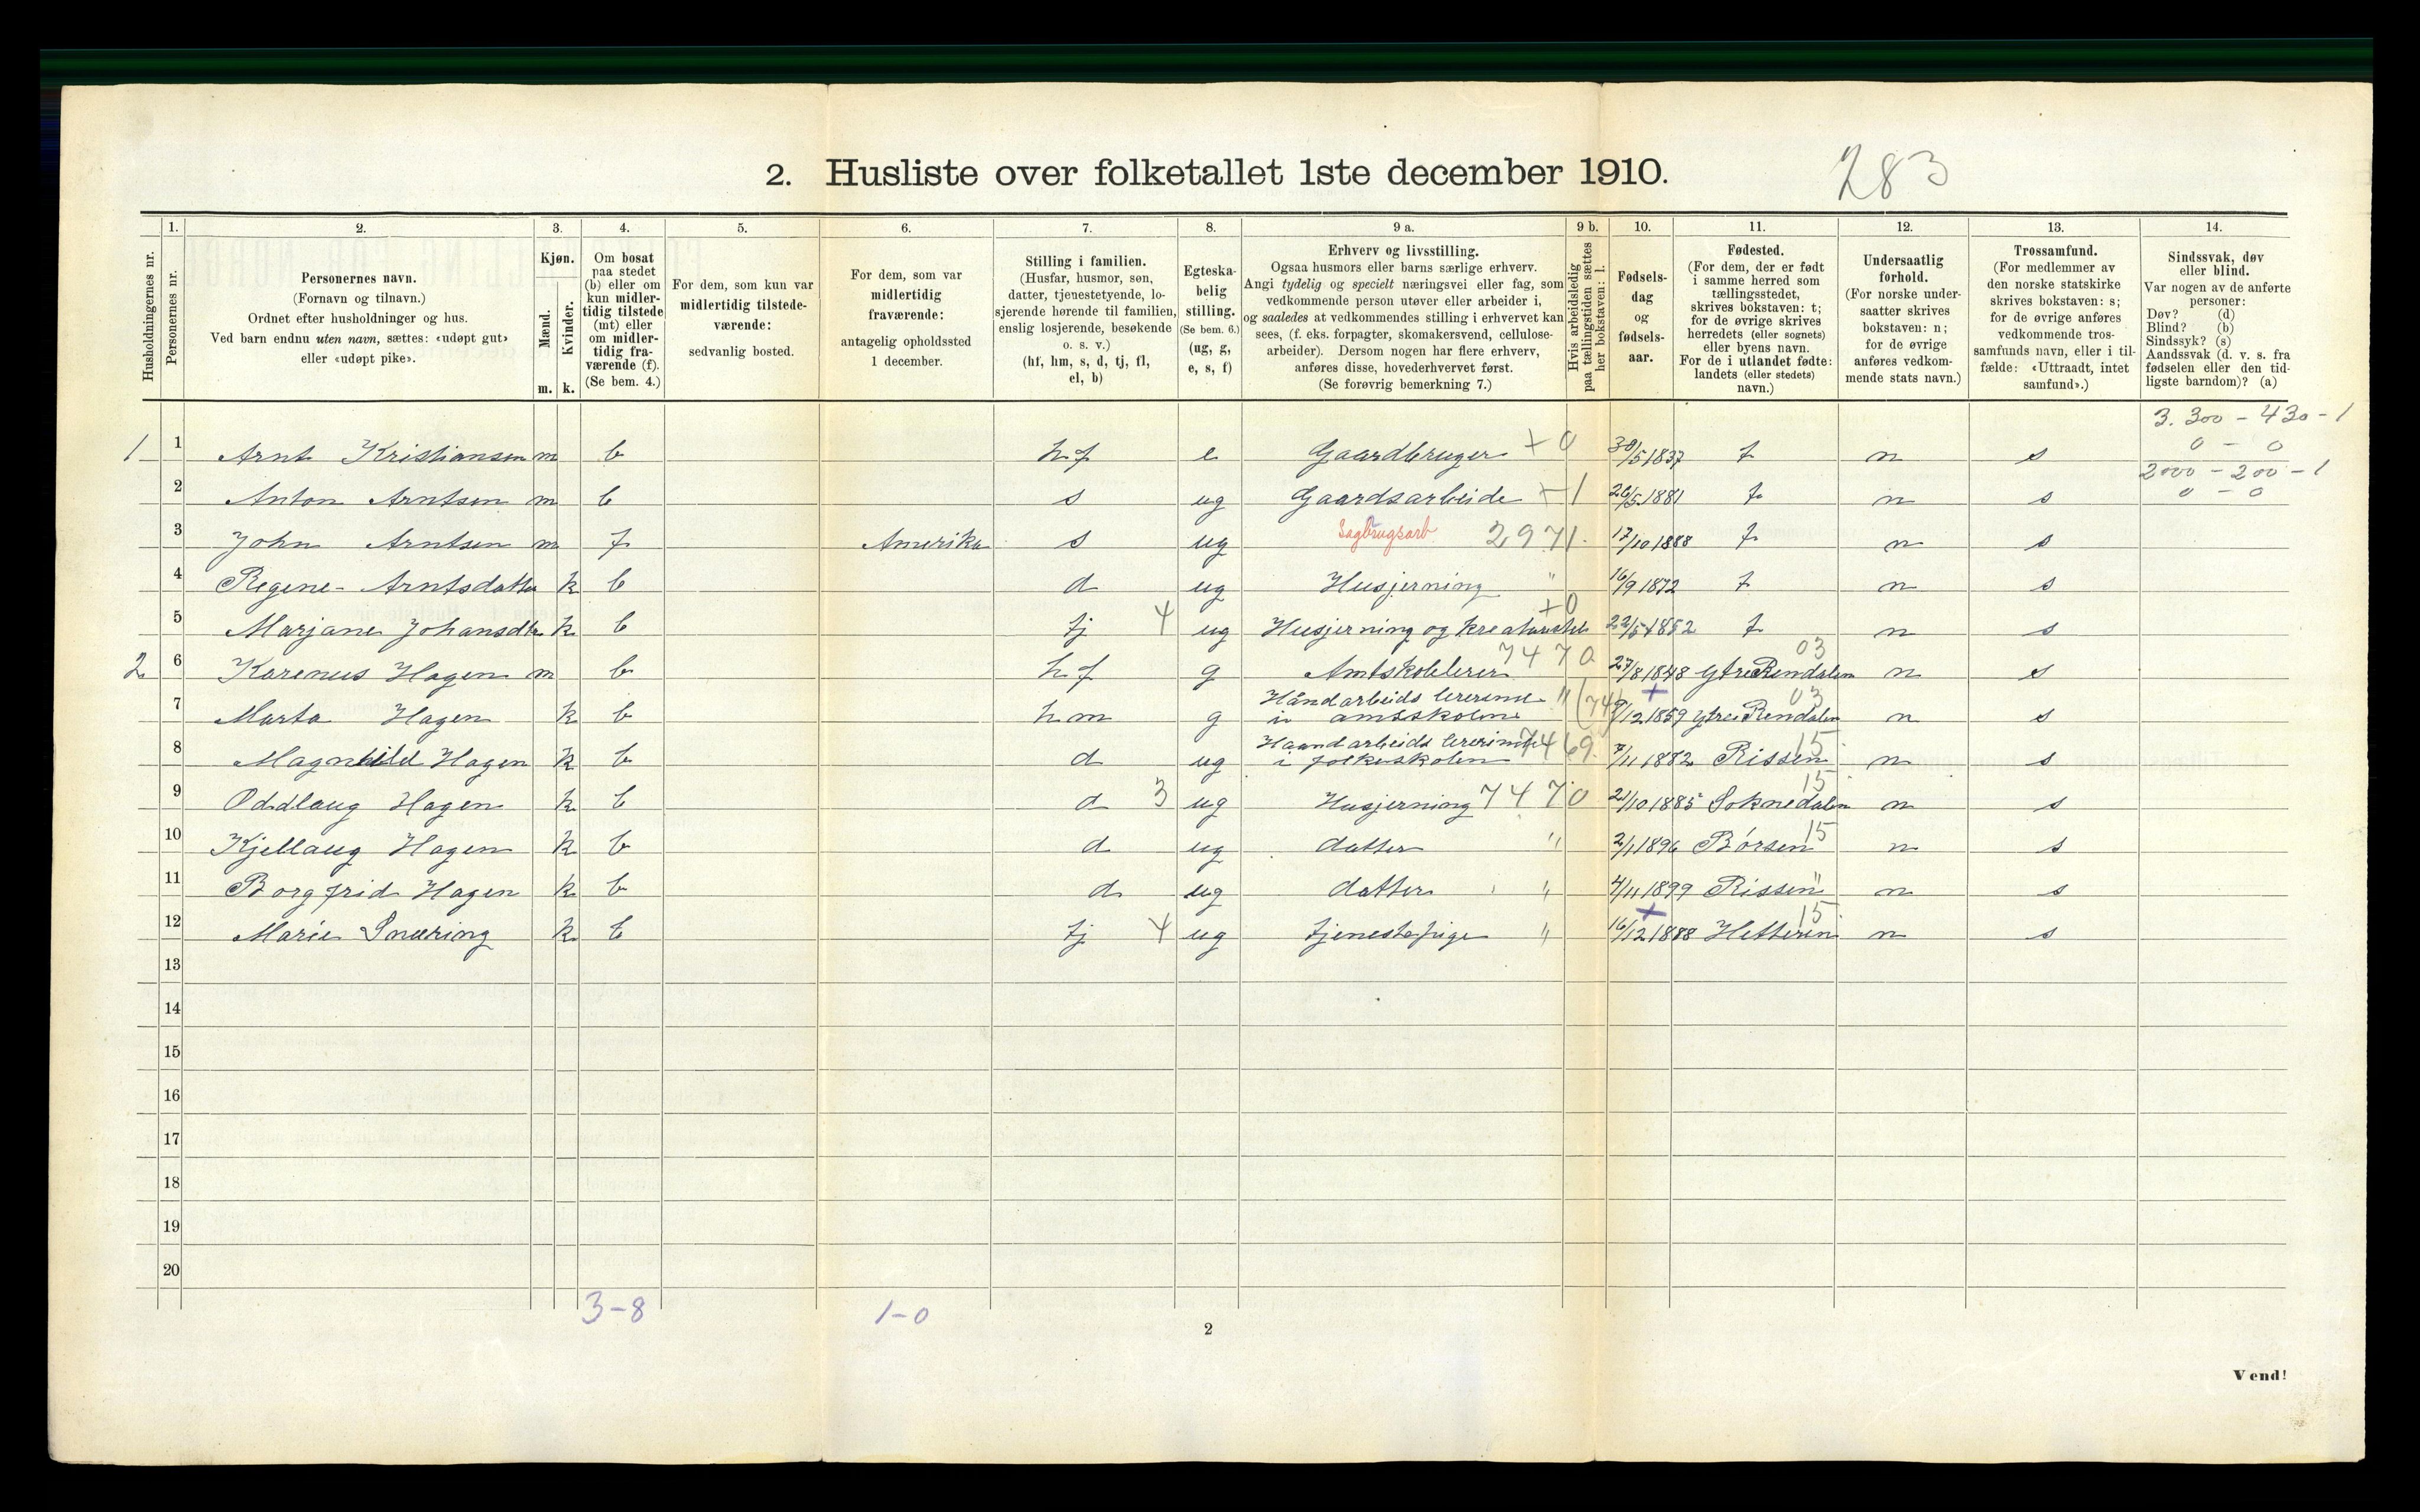 2. Husliste over folketallet 1ste december 1910.
283
1. 2. 3. 4. 5. 6. 7. 8. 9 a. 9 b. 10. 11. 12. 13. 14.
Husholdningernes nr.
Personernes nr.
Personernes navn.
(Fornavn og tilnavn.)
Ordnet efter husholdninger og hus.
Ved barn endnu uten navn, sættes: «udøpt gut»
eller «udøpt pike».
Kjøn.
Mænd.
Kvinder.
m. k.
Om bosat
paa stedet
(b) eller om
kun midler-
tidig tilstede
(mt) eller
om midler-
tidig fra-
værende (f).
(Se bem. 4.)
For dem, som kun var
midlertidig tilstede-
værende:
sedvanlig bosted.
For dem, som var
midlertidig
fraværende:
antagelig opholdssted
1 december.
Stilling i familien.
(Husfar, husmor, søn,
datter, tjenestetyende, lo-
sjerende hørende til familien,
enslig losjerende, besøkende
o. s. v.)
(hf, hm, s, d, tj, fl,
el, b)
Egteska-
belig
stilling.
(Se bem. 6.)
(ug, g,
e, s, f)
Erhverv og livsstilling.
Ogsaa husmors eller barns særlige erhverv.
Angi tydelig og specielt næringsvei eller fag, som
vedkommende person utøver eller arbeider i,
og saaledes at vedkommendes stilling i erhvervet kan
sees, (f. eks. forpagter, skomakersvend, cellulose-
arbeider). Dersom nogen har flere erhverv,
anføres disse, hovederhvervet først.
(Se forøvrig bemerkning 7.)
Hvis arbeidsledig
paa tællingstiden sættes
her bokstaven: l.
Fødsels-
dag
og
fødsels-
aar.
Fødested.
(For dem, der er født
i samme herred som
tællingsstedet,
skrives bokstaven: t;
for de øvrige skrives
herredets (eller sognets)
eller byens navn.
For de i utlandet fødte:
landets (eller stedets)
navn.)
Undersaatlig
forhold.
(For norske under-
saatter skrives
bokstaven: n;
for de øvrige
anføres vedkom-
mende stats navn.)
Trossamfund.
(For medlemmer av
den norske statskirke
skrives bokstaven: s;
for de øvrige anføres
vedkommende tros-
samfunds navn, eller i til-
fælde: «Uttraadt, intet
samfund».)
Sindssvak, døv
eller blind.
Var nogen av de anførte
personer:
Døv? (d)
Blind? (b)
Sindssyk? (s)
Aandssvak (d. v. s. fra
fødselen eller den tid-
ligste barndom)? (a)
3.300 - 430 - 1
0 - 0
1 1 Arnt Kristiansen m b hf e Gaardbruger + 0 30/5 1837 t n s
2000 - 200 - 1
0 - 0
2 Anton Arntsen m b s ug Gaardsarbeide + 1 26/5 1881 t n s
3 John Arntsen m f Amerika s ug Sagbrugsarb 2971. 17/10 1888 t n s
4 Regene Arntsdatter k b d ug Husjerning " 16/9 1872 t n s
5 Marjane Johansdtr k b tj 4 ug Husjerning og kreaturstel +0 22/5 1852 t n s
2 6 Karenus Hagen m b hf g Amtskolelerer 7470 27/8 1848 Ytre Rendalen 03 n s
7 Marta Hagen k b hm g Håndarbeids lererinne
i amtsskolen " /12 1859 Ytre Rendalen 03 n s
8 Magnhild Hagen k b d ug Haandarbeids lererinne
i folkeskolen 7469 7/11 1882 Rissen 15 n s
9 Oddlaug Hagen k b d 3 ug Husjerning 7470 21/10 1885 Soknedalen 15 n s
10 Kjellaug Hagen k b d ug datter " 2/1 1896 Børsen 15 n s
11 Borgfrid Hagen k b d ug datter " 4/11 1899 Rissen " n s
12 Marie Snæring k b tj 4 ug tjenestepige " 16/12 1888 Hitteren 15 n s
13
14
15
16
17
18
19
20
3-8 1-0
2
Vend!